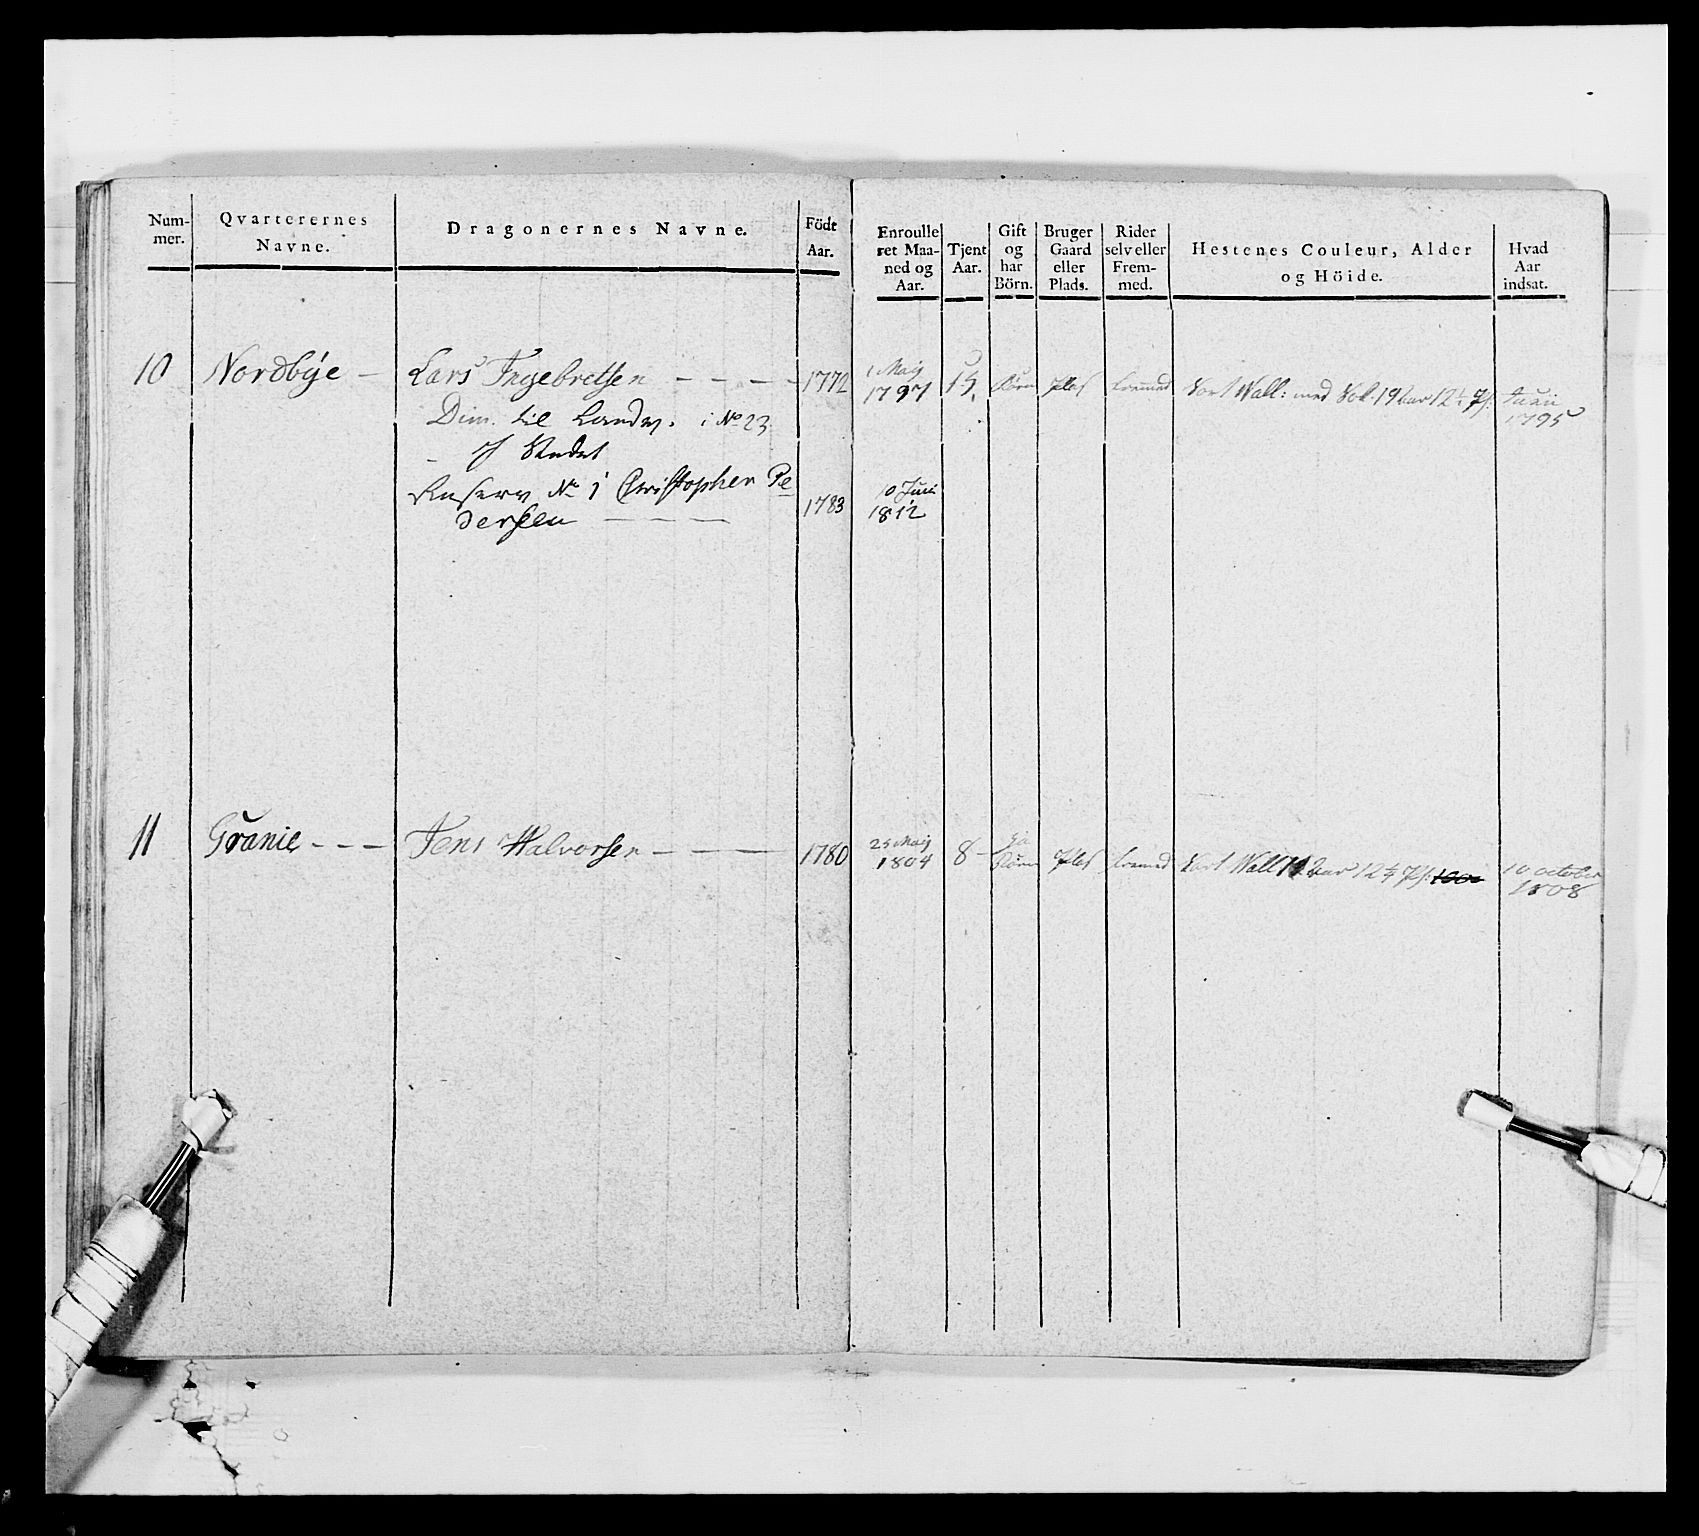 Num-
mer.
Qvarterernes
Navne.
Dragonernes Navne.
Födt
Aar.
Enroulle
ret Maa-
ned og
Aar.
Tjent
Aar.
Gift
og
har
Börn.
Bruger
Gaard
eller
Plads.
Rider
selv eller
Frem-
med.
Hestenes Couleur, Alder
og Höide.
Hvad
Aar
indsat.
10 Nordbÿe — Lars Ingebretsen — — — — 1772
Dim. til Landv. i No 23
No 1 Christopher Pe
dersen — — — 1783
1 Maij
1797 15. Børn Plas fremed Sort Wall: med 19 aar 12 1/4 Juni
1795
10 Juni
1812
11 Granie - - - Jens Halvorsen — — — — 1780
25 Maij
1804 8 - Ja
Børn Plas fremed Sort Wall aar 12 10 october
1808